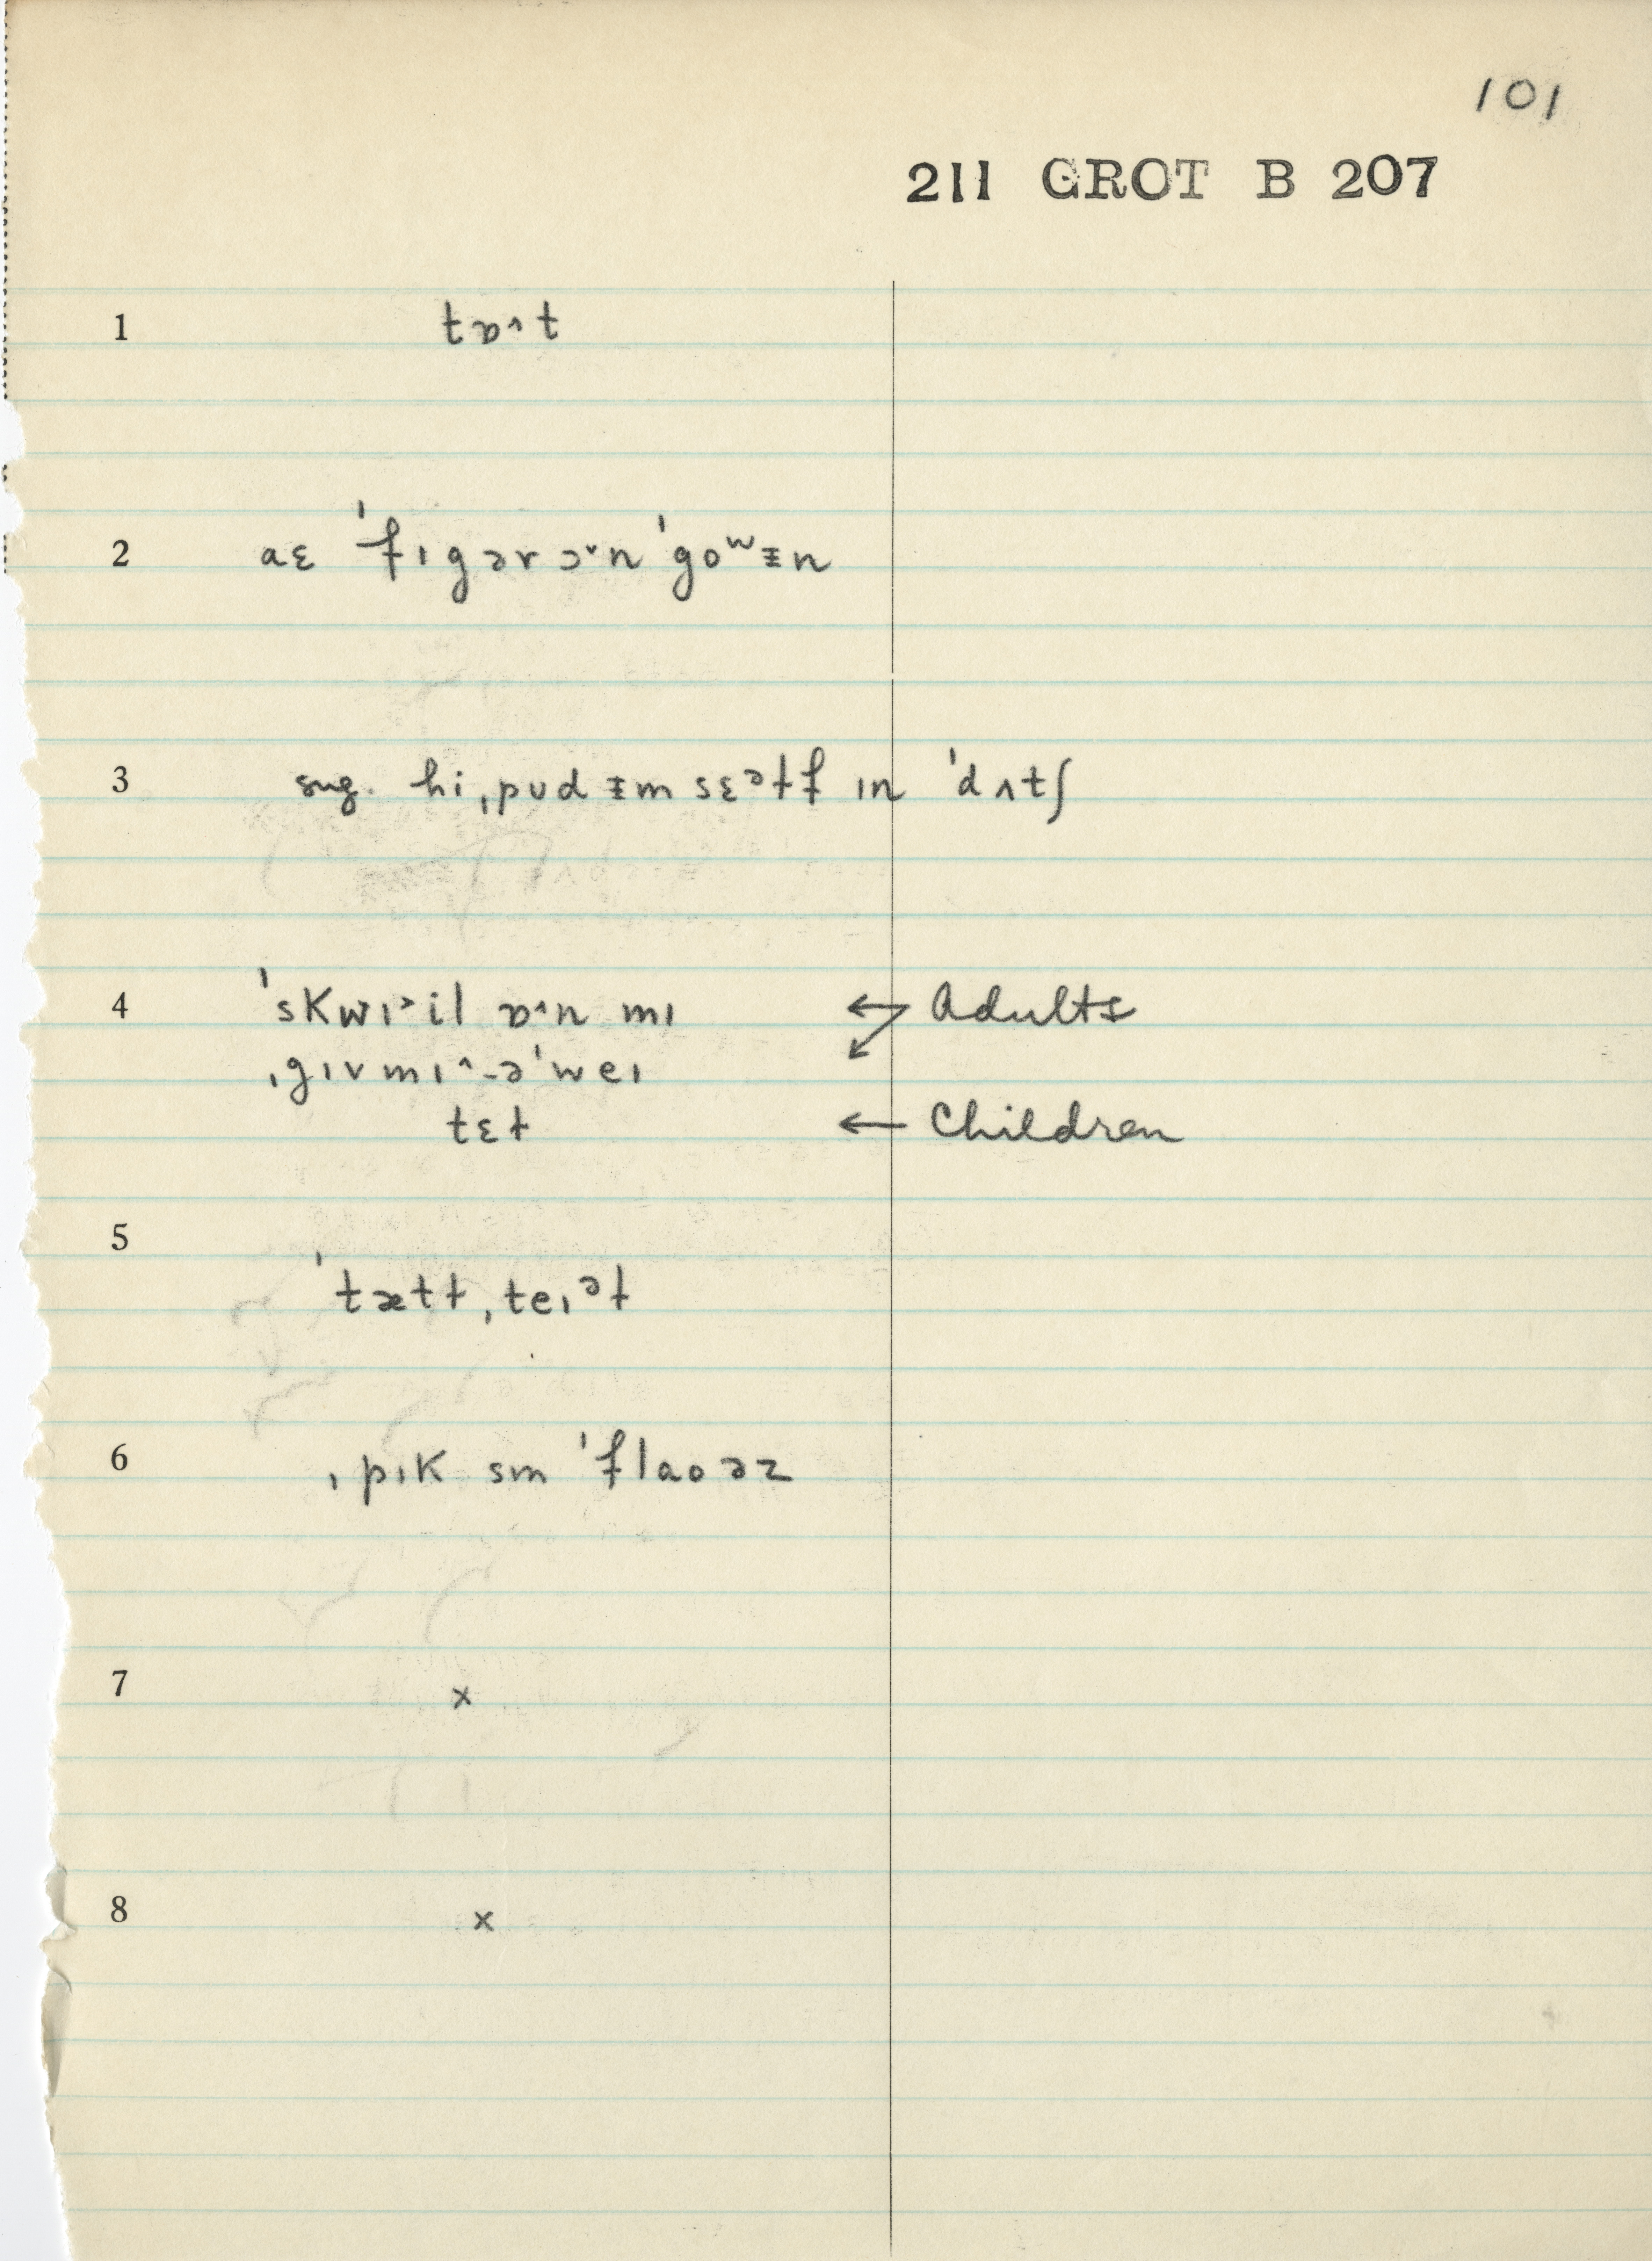 101
211 GROT B 207
1 tɒ˄t
2 aɛ ˈfɪgər ɔ˅n ˈgoʷɪ̵n
3 sug. hi ˌpʊd ɪ̵m sɛᵊɫf ɪn ˈdʌtʃ
4 ˈskwɪ˃il ɒ˄n mɪ ← Adults
ˌgɪv mɪ˄-əˈweɪ
tɛɫ ← Children
5
ˈtætɫˌteɪᵊɫ
6 ˌpɪk sm ˈflaoəz
7 x
8 x